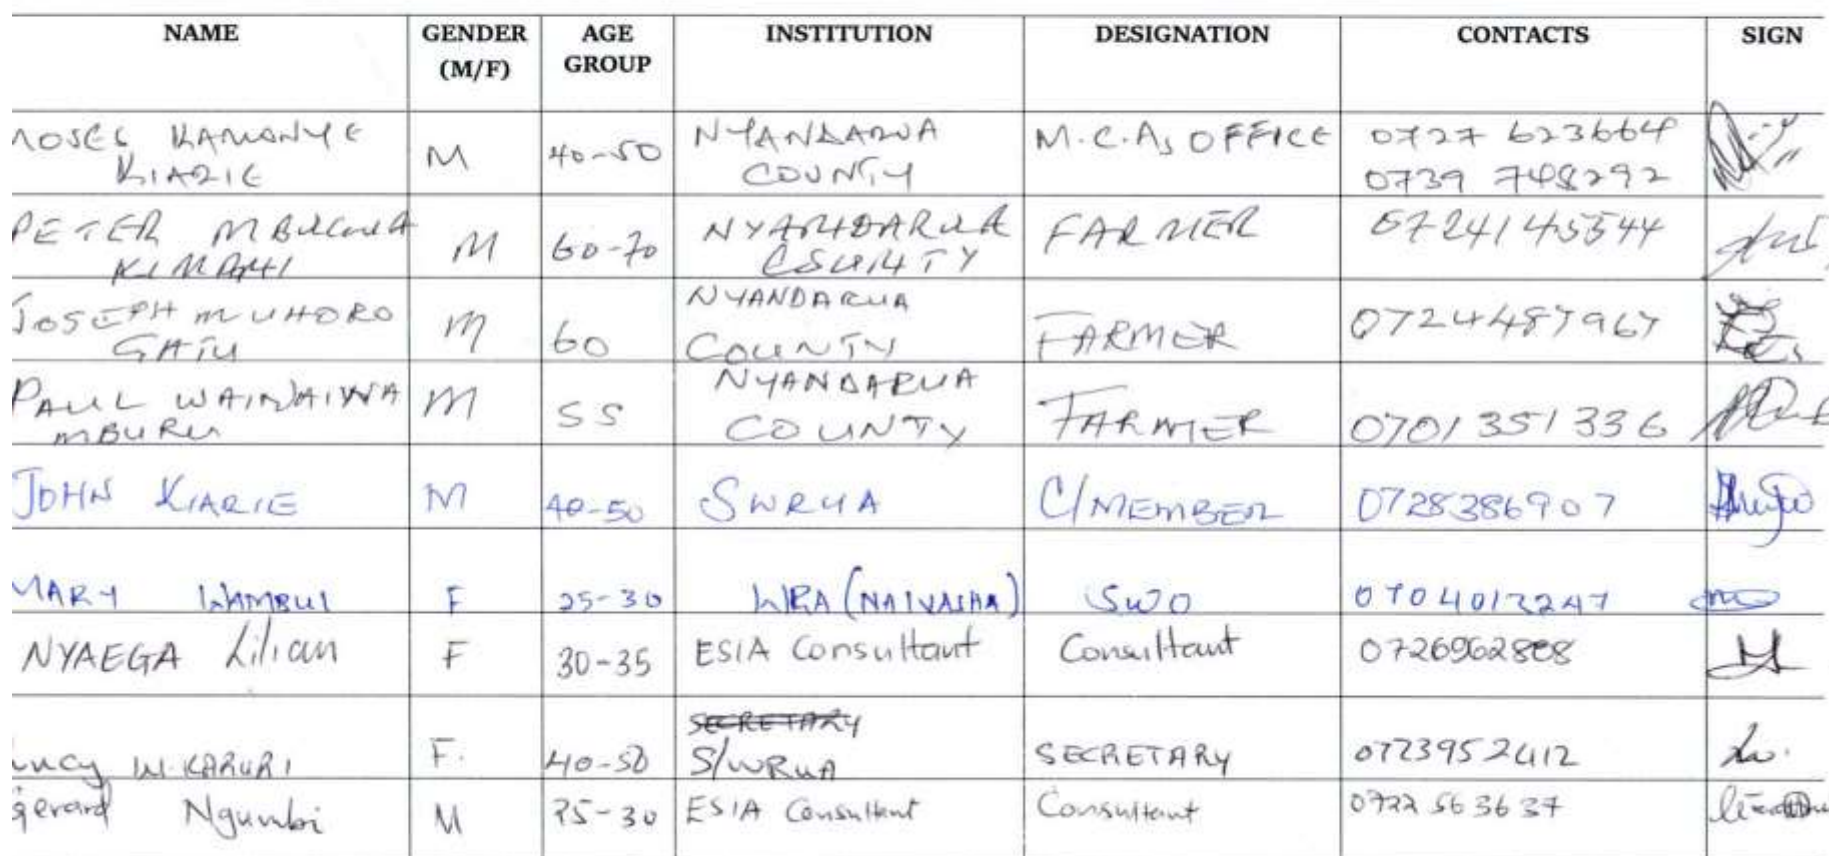 NAME GENDER (M/F) AGE GROUP INSTITUTION DESIGNATION CONTACTS SIGN
MOSES KAMONYE KIARIE M 40-50 NYANDARUA COUNTY M.C.As OFFICE 0727 623664 0739 748292
PETER KIMANI M 60-70 NYANDARUA COUNTY FARMER 0724145544
JOSEPH MUHORO GATU M 60 NYANDARUA COUNTY FARMER 0724487967
PAUL WAINAINA MBURU M 55 NYANDARUA COUNTY FARMER 0701351336
JOHN KIARIE M 40-50 SWRUA C/MEMBER 0728386907
MARY WAMBUI F 25-30 WRA (NAIVASHA) SWO 0704013247
NYAEGA Lilian F 30-35 ESIA Consultant Consultant 0726962808
W. KARURI F. 40-50 SECRETARY S/WRUA SECRETARY 0723952412
gerard Ngumbi M 25-30 ESIA Consultant Consultant 0722 563637